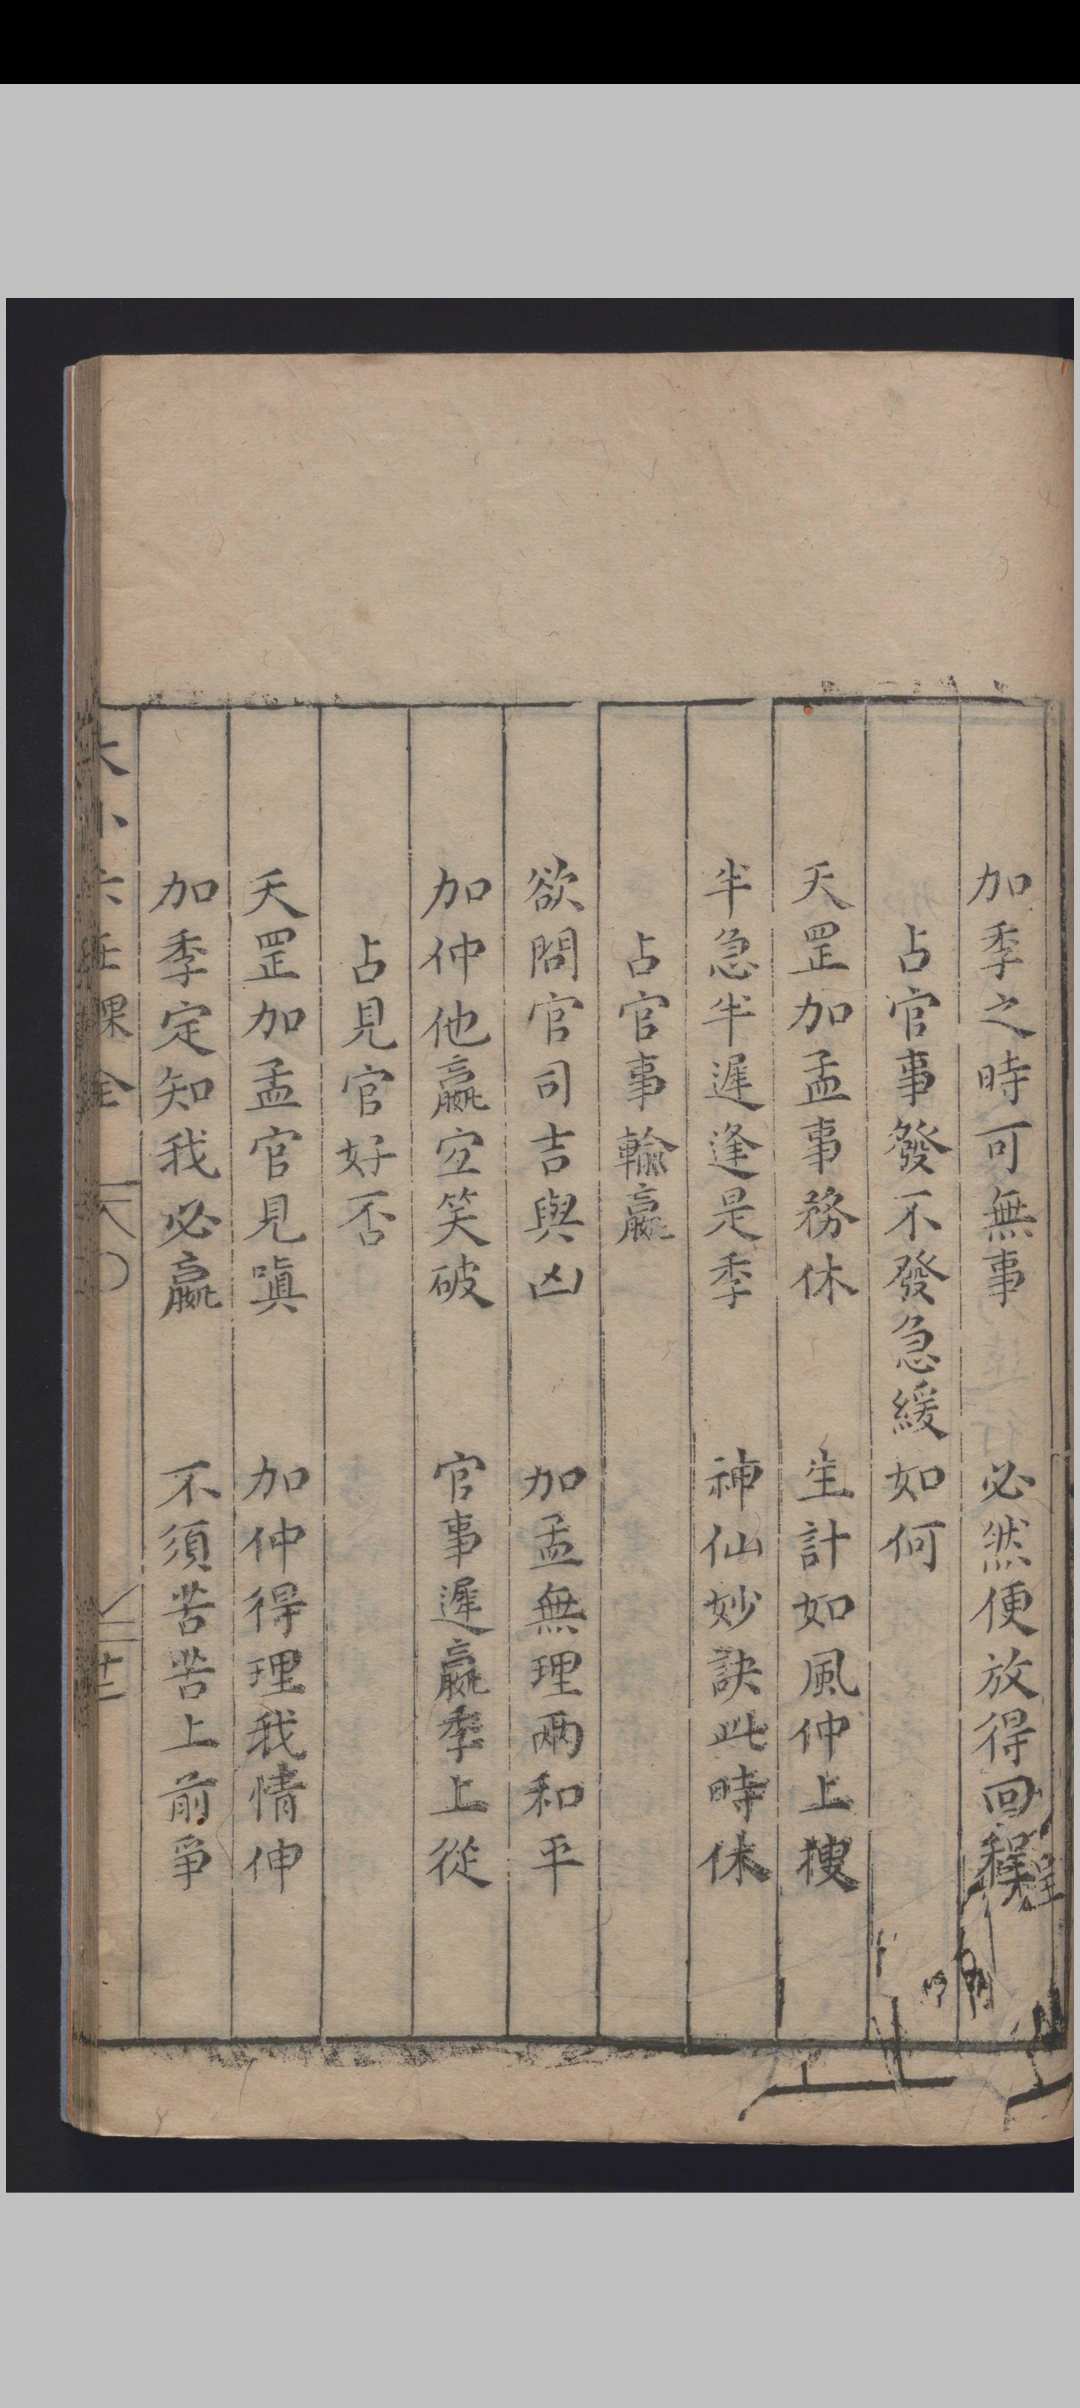 加季之時可無事　必然便放得回程
占官事發不發急緩如何
天罡加孟事務休　生計如風仲上搜
半急半遲逢是季　神仙妙訣此時休
占官事輸贏
欲問官司吉與凶　加孟無理兩和平
加仲他贏空笑破　官事遲贏季上從
占見官好否
天罡加孟官見嗔　加仲得理我情伸
加季定知我必贏　不須苦苦上前爭
大小六壬課全